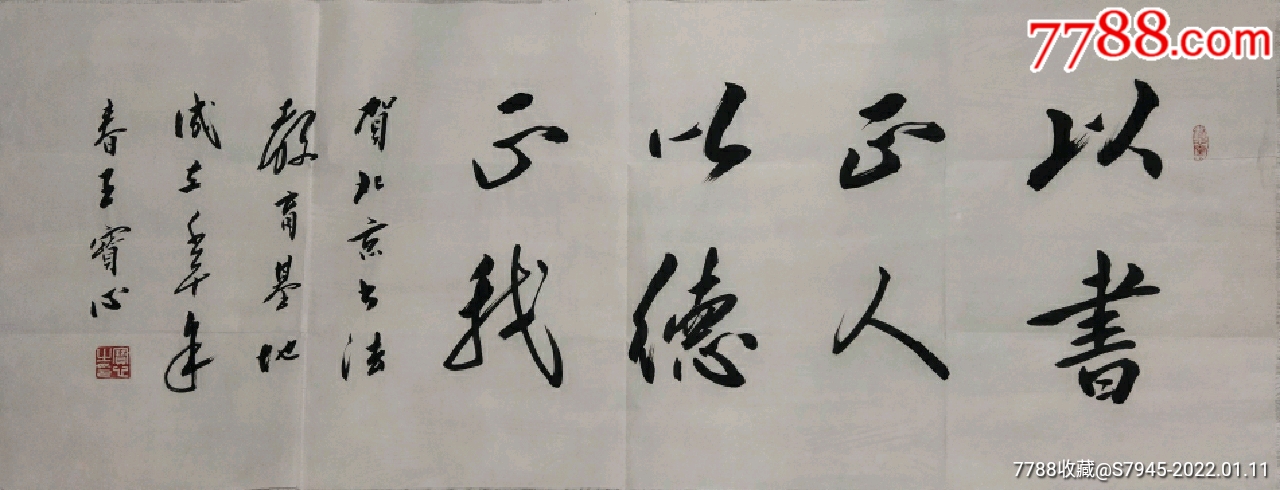 7788.com
以書
正人
以德
正我
賀北京书法
教育基地
成立年
春王寶心
7788收藏@S7945-2022.01.11